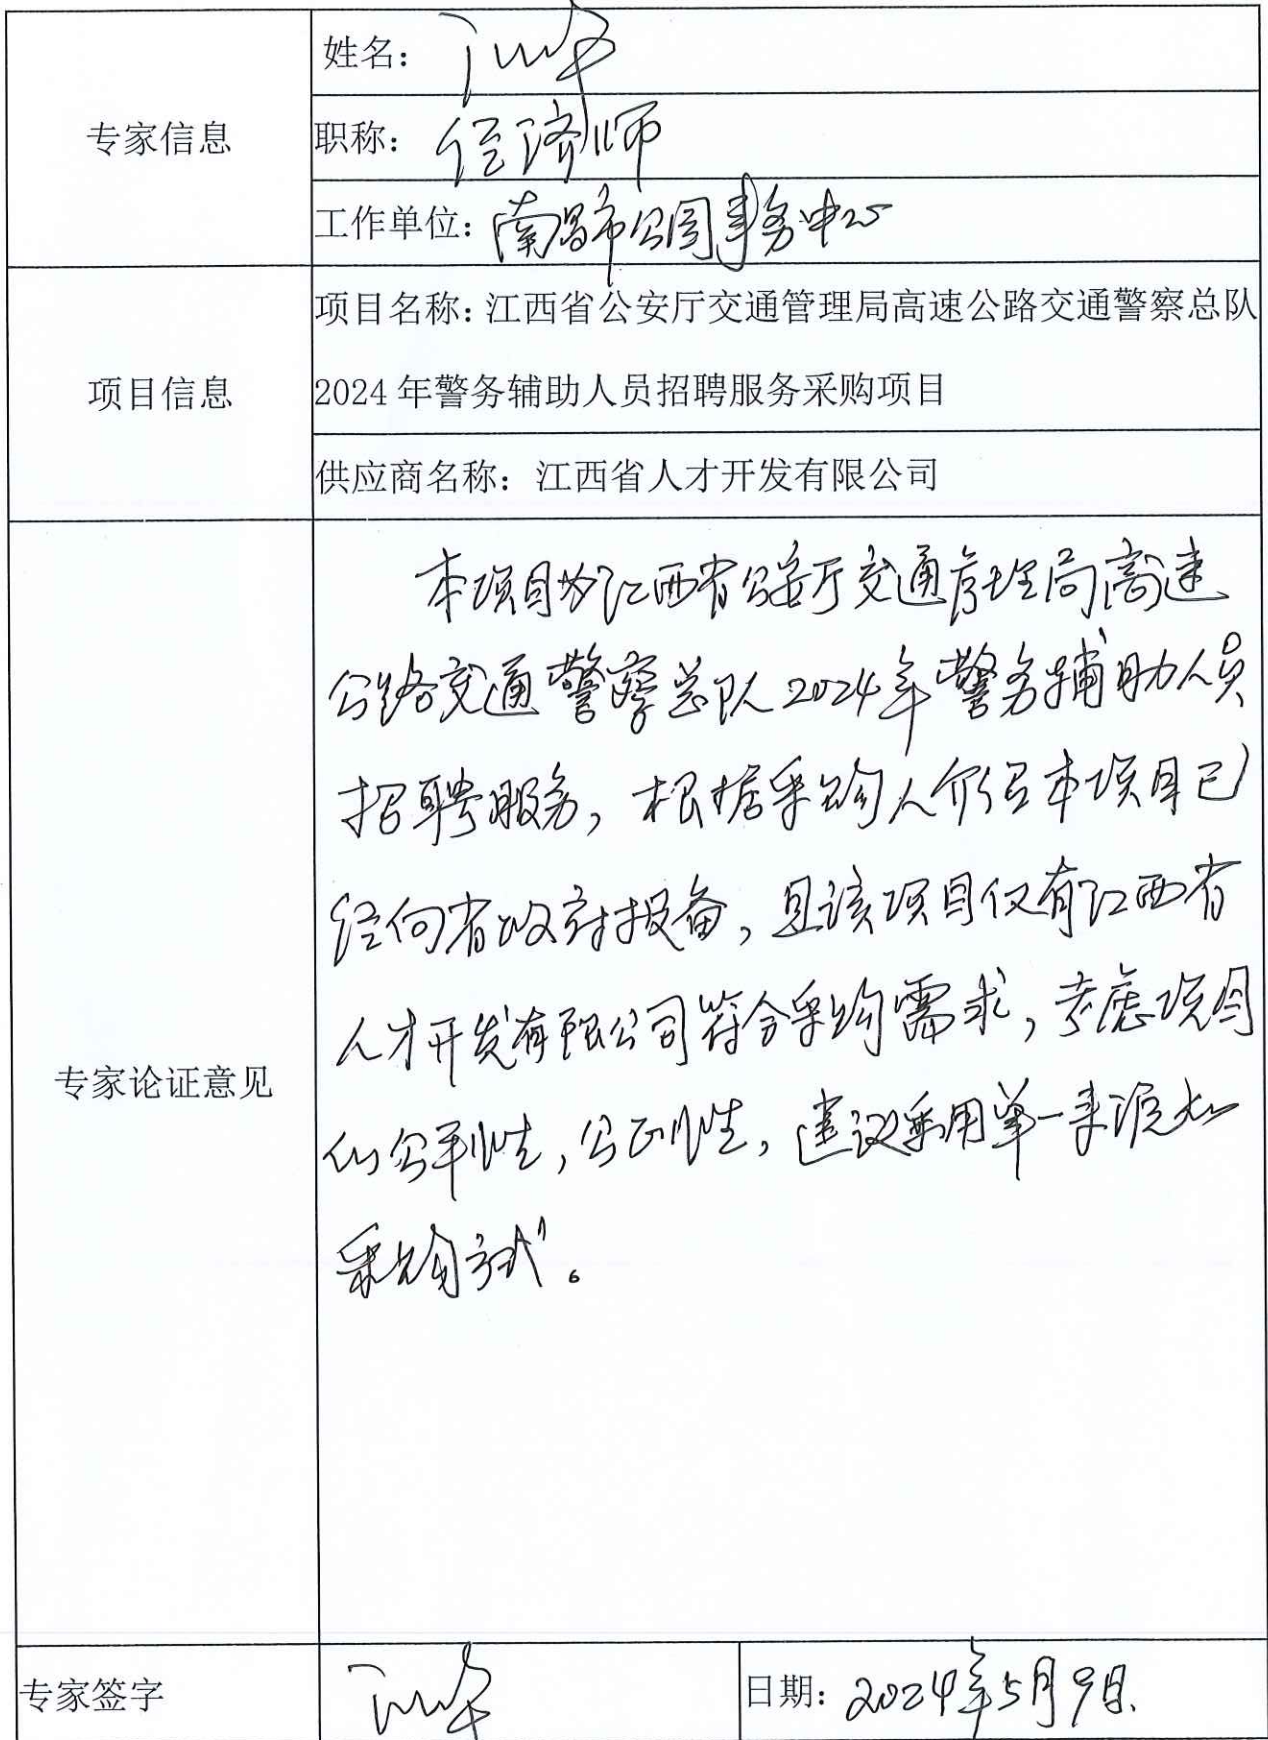 姓名：
专家信息
职称：经济师
工作单位：南昌市公园事务中心
项目名称：江西省公安厅交通管理局高速公路交通警察总队
项目信息
2024 年警务辅助人员招聘服务采购项目
供应商名称：江西省人才开发有限公司
本项目为江西省公安厅交通管理局高速
公路交通警察总队2024年警务辅助人员
招聘服务，根据采购人介绍本项目已
经向省政府报备，且该项目仅有江西省
人才开发有限公司符合采购需求，考虑项目
专家论证意见
的公平性，公正性，建议采用单一来源的
采购方式。
专家签字
日期：2024年5月9日.